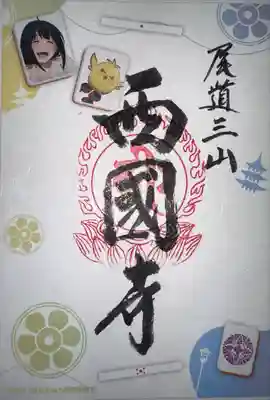 尾道三山
西國寺